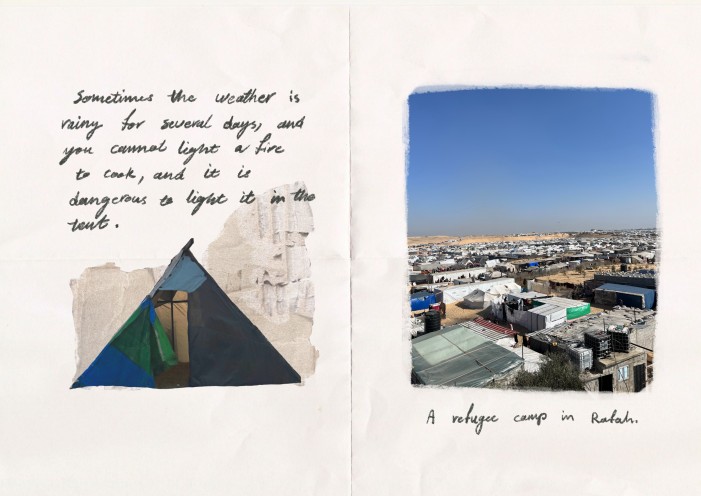 Sometimes the weather is
rainy for several days, and
you cannot light a fire
to cook, and it is
dangerous to light it in the
tent.
A refugee camp in Rafah.